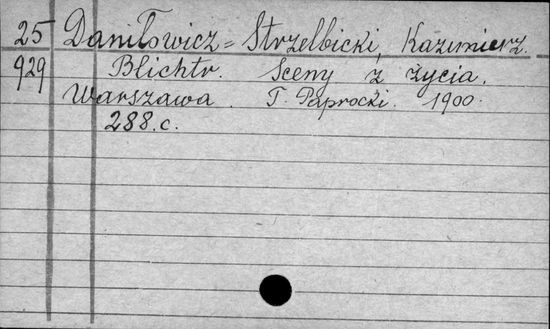 25 Daniłowicz=Strzelbicki, Kazimierz.
929 Blichtr. Sceny z życia.
Warszawa. T. Paprocki. 1900.
288.c.